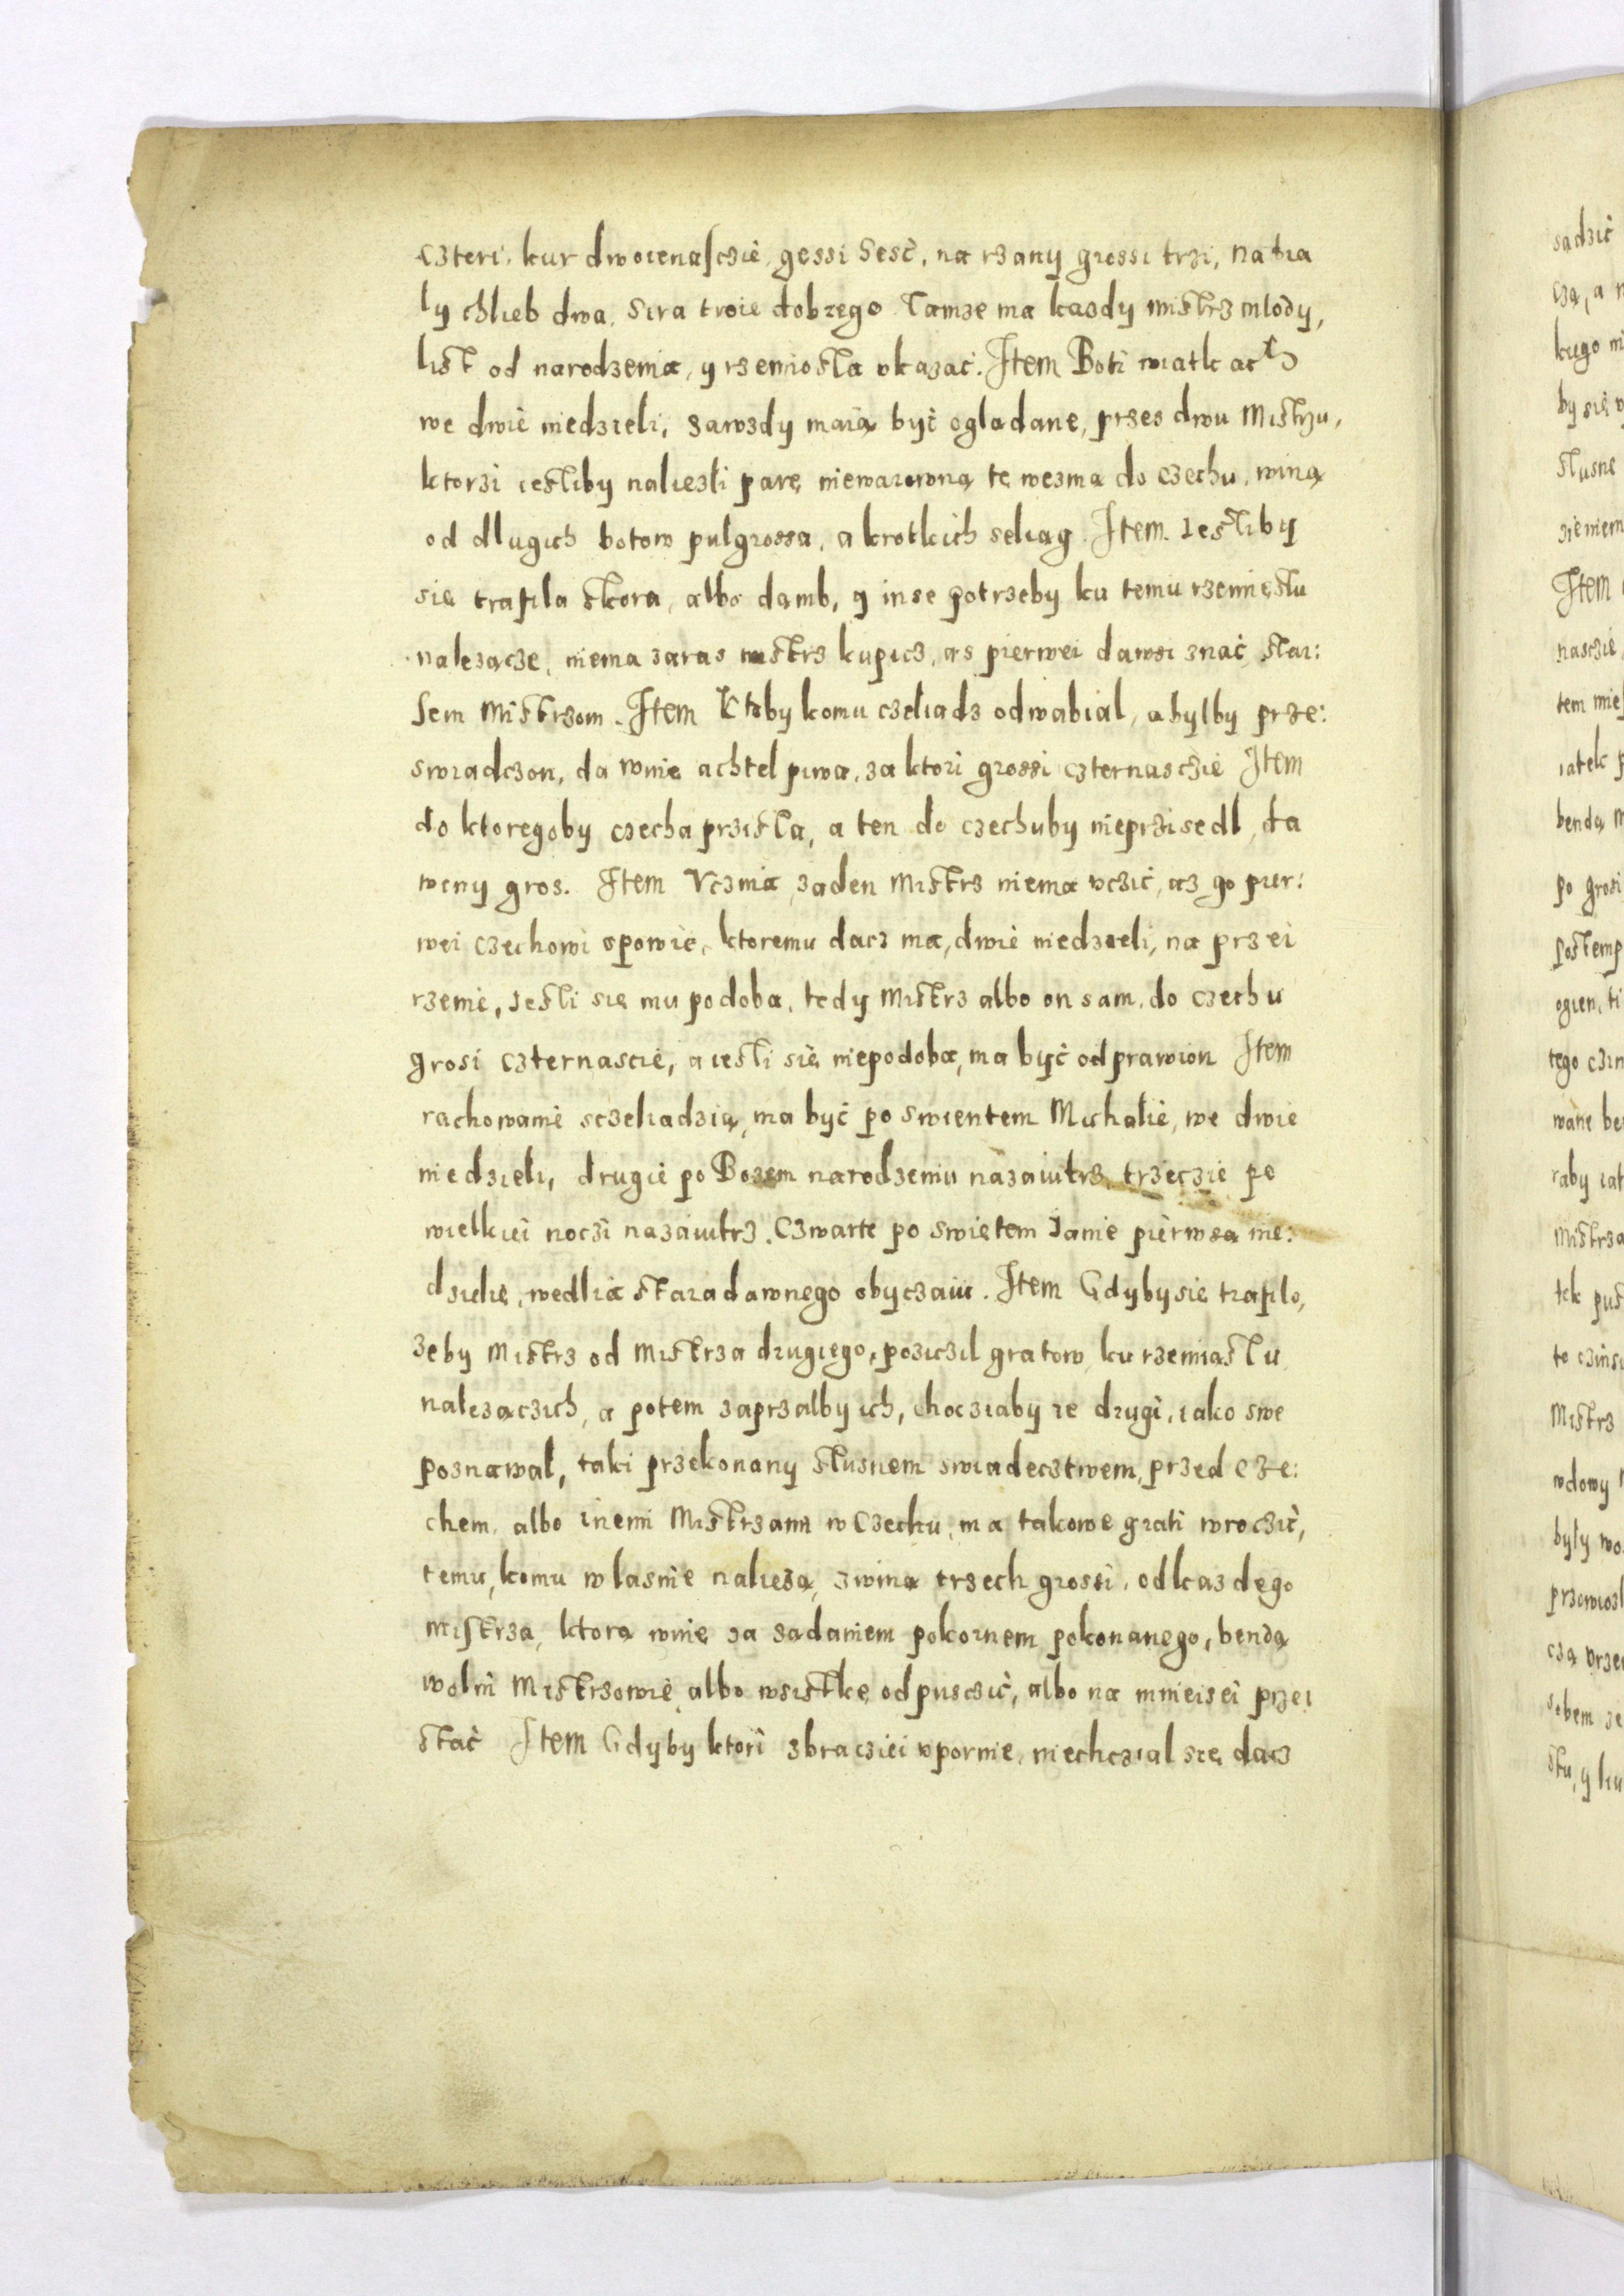 czteri, kur dwoienasczie, gessi sesć, na rzany grossi trzi, na bia
ly chlieb dwa, sira troie dobrego Tamze ma kazdy mistrz mlody,
list od narodzenia, y rzemiosla vkazać. Item Boti wiatkach
we dwie niedzieli, zawzdy maią być ogladane, przes dwu Mistrzu,
ktorzi iestliby naliezli parę niewarowną tę wezmą do czechu, winą
od dlugich botow pulgrossa, a krotkich seliag. Item. Iestliby
się trafila skora, albo damb, y inse potrzeby ku temu rzemięslu
nalezącze, niema zaras mistrz kupicz, as pierwei dawsi znać star:
sem Mistrzom. Item Ktoby komu czeliadz odwabial, a bylby prze:
swiadczon, da winie achtel piwa, za ktori grossi czternasczie Item
do ktoregoby czecha przisla, a ten do czechuby nieprzisedl, da
winy gros. Item Vcznia, zaden Mistrz niema vczić, az go pier:
wei czechowi opowie, ktoremu dacz ma, dwie niedzieli, na przei
rzenie, Iesli się mu podoba, tedy Mistrz albo on sam, do czechu
grosi czternascie, a iesli się niepodoba, ma być odprawion Item
rachowanie sczeliadzią, ma być po swientem Michalie, we dwie
niedzieli, drugie po Bozem narodzeniu nazaiutrz, trzeczie po
wielkiei noczi nazaiutrz. Czwarte po swiętem Janie pierwsą nie:
dzielię, wedlia staradawnego obyczaiu. Item Gdyby się trafilo,
zeby Mistrz od Mistrza drugiego, pozicził gratow, ku rzemiaslu
nalezączich, a potem zaprzalby ich, choczaby ie drugi, iako swe
poznawal, taki przekonany slusnem swiadecztwem, przed cze:
chem, albo inemi Mistrzami w Czechu, ma takowe grati wroczić,
temu, komu wlasnie naliezą, zwiną trzech grossi, od kazdego
mistrza, ktorą winę za żadaniem pokornem pokonanego, bendą
wolni Mistrzowie albo wsistkę odpusczić, albo na mnieisei przei
stać Item Gdyby ktori zbracziei vpornie, niechczial się dacz